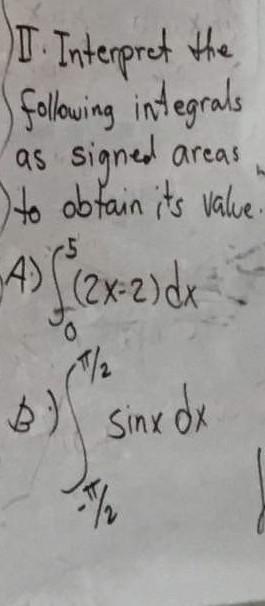 II. Interpret the
following integrals
as signed areas
to obtain its value.
A.) ∫₀⁵ (2x-2) dx
B.) ∫_{-π/2}^{π/2} sinx dx